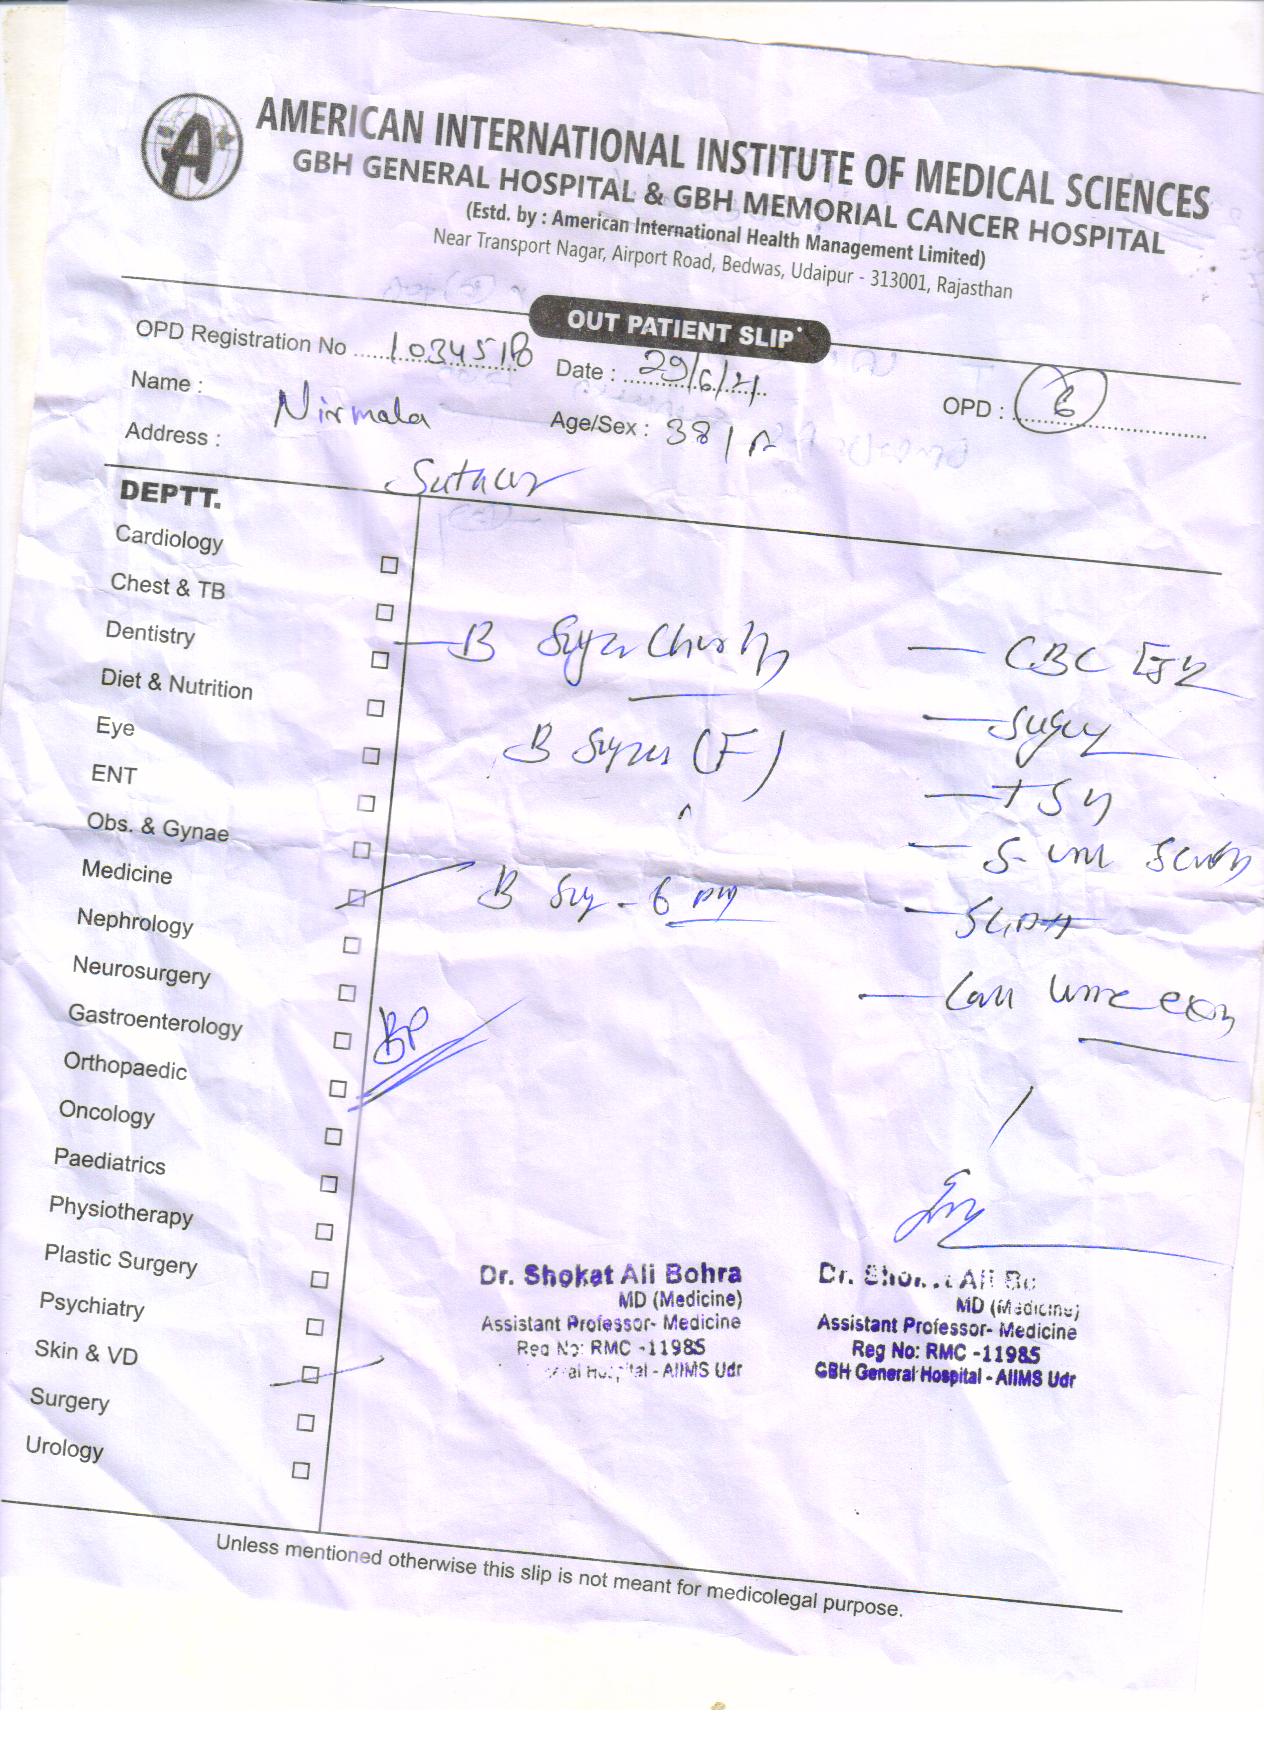 A
AMERICAN INTERNATIONAL INSTITUTE OF MEDICAL SCIENCES
GBH GENERAL HOSPITAL & GBH MEMORIAL CANCER HOSPITAL
(Estd. by : American International Health Management Limited)
Near Transport Nagar, Airport Road, Bedwas, Udaipur - 313001, Rajasthan
OUT PATIENT SLIP
OPD Registration No 1034518 Date : 29/6/21
Name : Nirmala Age/Sex : 38/ OPD : 6
Address : Suthar
DEPTT.
Cardiology
Chest & TB
Dentistry
Diet & Nutrition
Eye
ENT
Obs. & Gynae
Medicine
Nephrology
Neurosurgery
Gastroenterology
Orthopaedic
Oncology
Paediatrics
Physiotherapy
Plastic Surgery
Psychiatry
Skin & VD
Surgery
Urology
B Sugar
B Sugar (F)
B - 6 pm
BP
CBC
Sugar
TSH
S-
Urine
Dr. Shokat Ali Bohra
MD (Medicine)
Assistant Professor- Medicine
Reg No: RMC -11985
Hospital - AIIMS Udr
Dr. Ali
MD (Medicine)
Assistant Professor- Medicine
Reg No: RMC -11985
GBH General Hospital - AIIMS Udr
Unless mentioned otherwise this slip is not meant for medicolegal purpose.